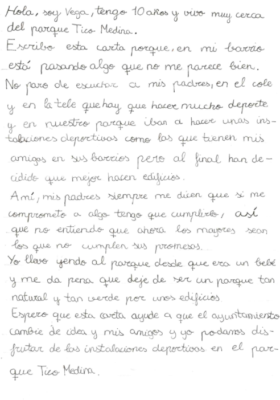 Hola, soy Vega, tengo 10 años y vivo muy cerca
del parque Tico Medina.
Escribo esta carta porque, en mi barrio
está pasando algo que no me parece bien.
No paro de escuchar a mis padres, en el cole
y en la tele que hay que hacer mucho deporte
y en nuestro parque iban a hacer unas ins-
talaciones deportivas como las que tienen mis
amigos en sus barrios pero al final han de-
cidido que mejor hacen edificios.
A mí, mis padres siempre me dicen que si me
comprometo a algo tengo que cumplirlo, así
que no entiendo que ahora los mayores sean
los que no cumplen sus promesas.
Yo llevo yendo al parque desde que era un bebé
y me da pena que deje de ser un parque tan
natural y tan verde por unos edificios.
Espero que esta carta ayude a que el ayuntamiento
cambie de idea y mis amigos y yo podamos dis-
frutar de las instalaciones deportivas en el par-
que Tico Medina.